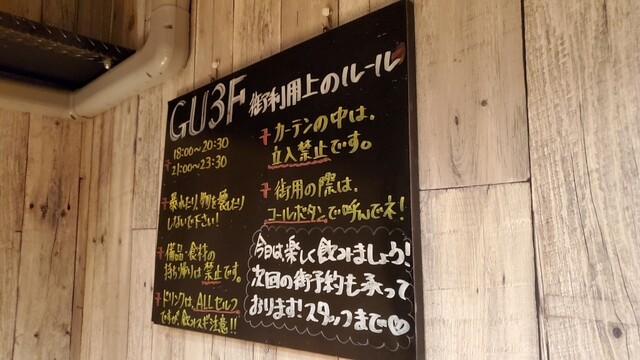 GU3F 御利用上のルール
18:00～20:30
21:00～23:30
暴れたり、物を壊したり
しないで下さい!
備品・食材の
持ち帰りは禁止です。
ドリンクは、ALLセルフ
ですが、飲みスギ注意!!
カーテンの中は、
立入禁止です。
御用の際は、
コールボタンで呼んでネ!
今日は楽しく飲みましょう!
次回の御予約も承って
おります!スタッフまで♡